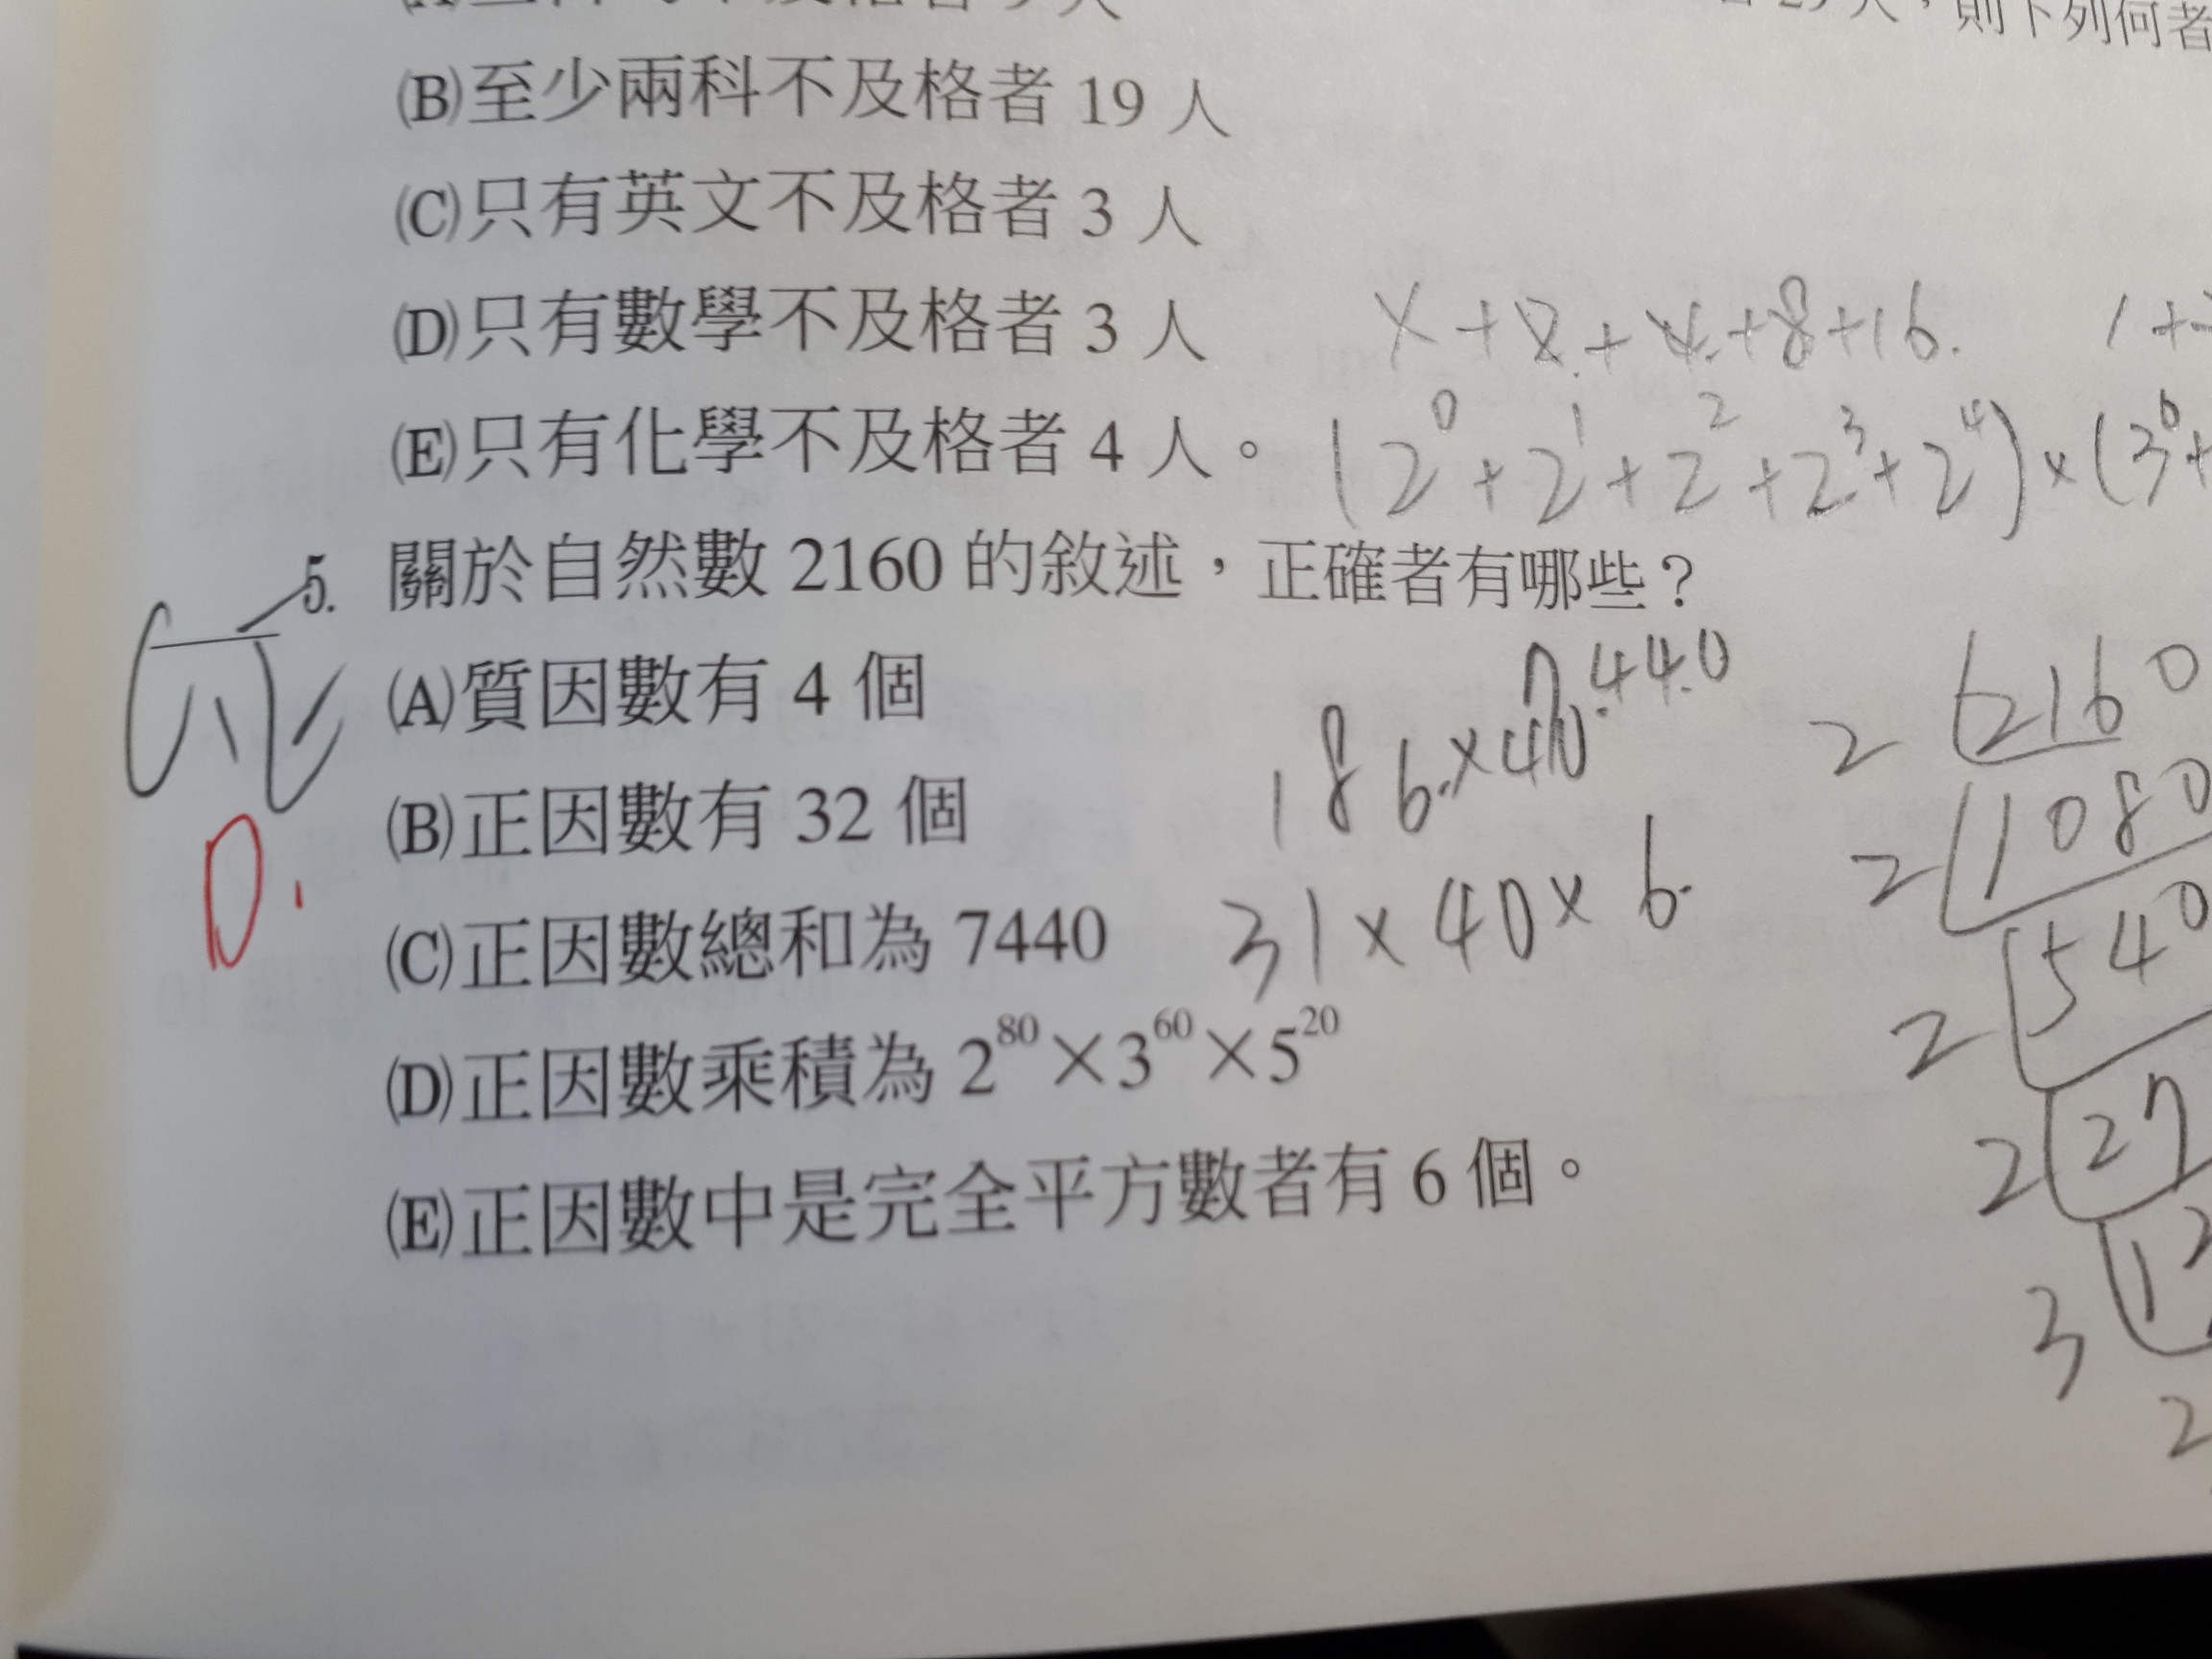 (B)至少兩科不及格者 19 人
則下列何者
(C)只有英文不及格者 3 人
(D)只有數學不及格者 3 人
+8+16. 1+
(E)只有化學不及格者 4 人。 (2⁰+2¹+2²+2³+2⁴)×(3⁰+
5. 關於自然數 2160 的敘述，正確者有哪些？
(A)質因數有 4 個
186×40 7440
2 2160
(B)正因數有 32 個
2 1080
(C)正因數總和為 7440 31×40×6
2 540
D.
(D)正因數乘積為 2⁸⁰×3⁶⁰×5²⁰
2 27
(E)正因數中是完全平方數者有 6 個。
3 1
2